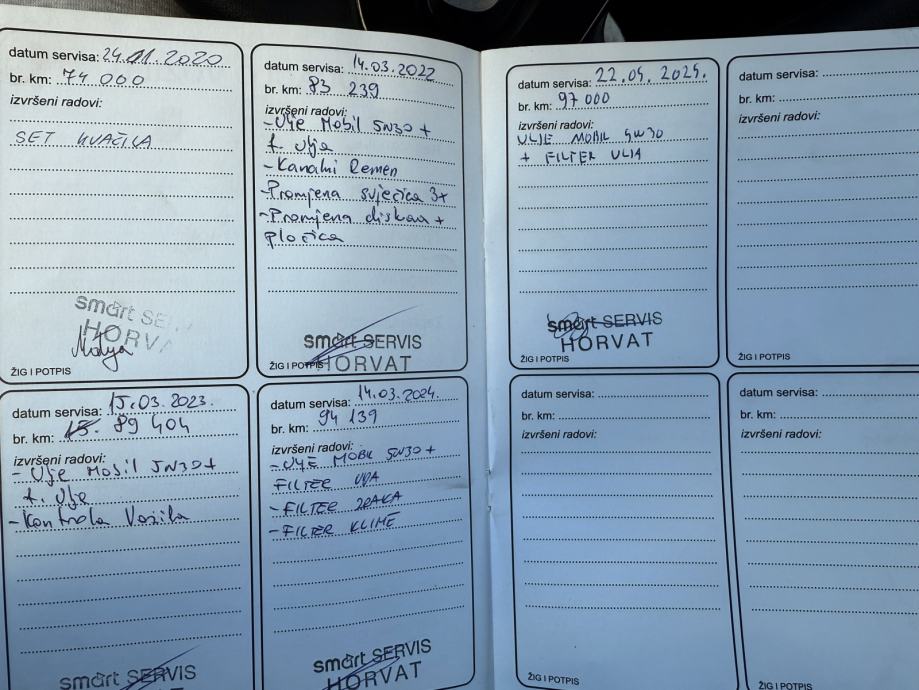 datum servisa: 24.01.2020
br. km: 74 000
izvršeni radovi:
SET KVAČILA
smart SE
HORVA
ŽIG I POTPIS
datum servisa: 14.03.2022
br. km: 83 239
izvršeni radovi:
- Ulje Mobil 5W30 +
f. ulja
- Kanalni Remen
- Promjena svječica 3+
- Promjena diskova +
pločica
smart SERVIS
HORVAT
ŽIG I POTPIS
datum servisa: 15.03.2023.
br. km: 89 404
izvršeni radovi:
- Ulje Mobil 5W30 +
f. Ulje
- Kontrola Vozila
smart SERVIS
datum servisa: 14.03.2024.
br. km: 94 139
izvršeni radovi:
- ULJE MOBIL 5W30 +
FILTER ULJA
- FILTER ZRAKA
- FILTER KLIME
smart SERVIS
HORVAT
datum servisa: 22.05.2025.
br. km: 97 000
izvršeni radovi:
ULJE MOBIL 5W30
+ FILTER ULJA
smart SERVIS
HORVAT
ŽIG I POTPIS
datum servisa:
br. km:
izvršeni radovi:
ŽIG I POTPIS
datum servisa:
br. km:
izvršeni radovi:
ŽIG I POTPIS
datum servisa:
br. km:
izvršeni radovi:
ŽIG I POTPIS